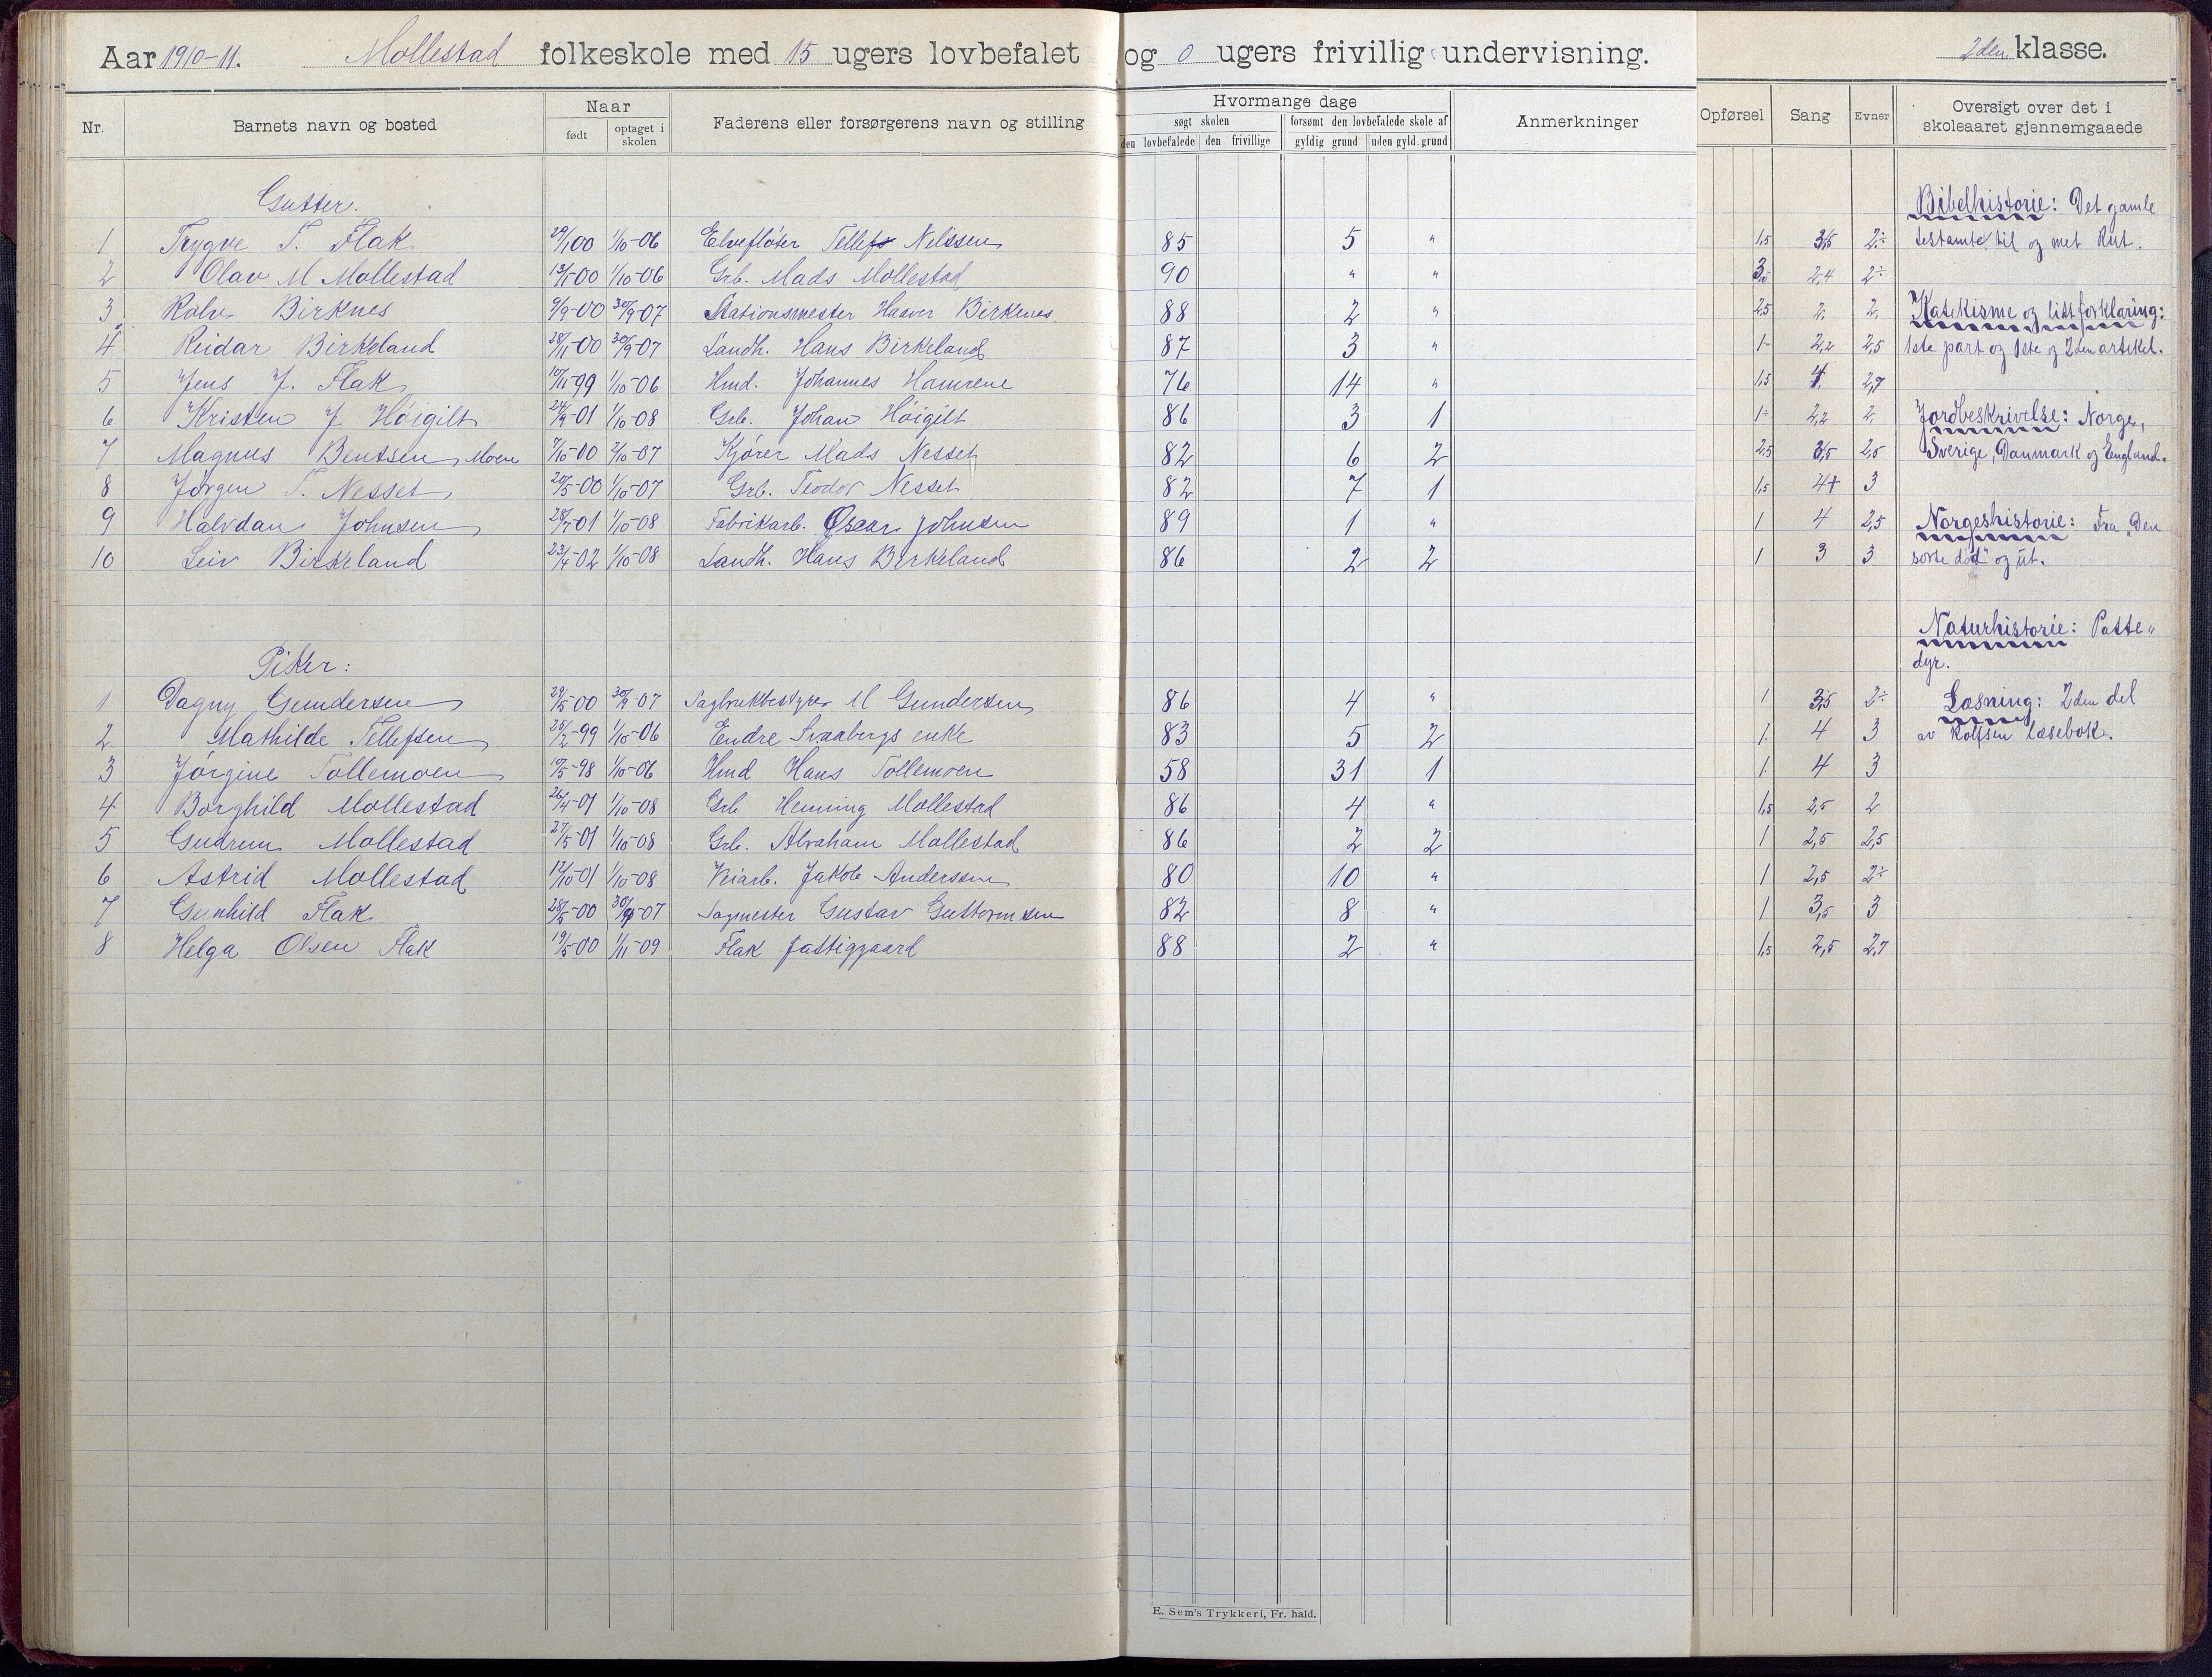 Aar 1910-11. Mollestad folkeskole med 15 ugers lovbefalet og 0 ugers frivillig undervisning. 2den klasse.
Nr. Barnets navn og bosted Naar født optaget i skolen Faderens eller forsørgerens navn og stilling Hvormange dage søgt skolen den lovbefalede den frivillige forsømt den lovbefalede skole af gyldig grund uden gyld. grund Anmerkninger Opførsel Sang Evner Oversigt over det i skoleaaret gjennemgaaede
Gutter. Bibelhistorie: Det gamle
1 Trygve T. Flak 29/1 00 1/10-06 Elvefløter Tellef Nilssen 85 5 " 1,5 3,5 2÷ testamte til og met Rut.
2 Olav M Mollestad 13/1-00 1/10-06 Grb. Mads Mollestad 90 " " 2,4 2÷
3 Rolv Birknes 9/9-00 30/9-07 Stationsmester Haaver Birkenes 88 2 " 2,5 2, 2, Katekisme og litt forklaring:
4 Reidar Birkeland 28/11-00 30/9-07 Landh. Hans Birkeland 87 3 " 1- 2,2 2,5 1ste part og 1ste og 2den artikel.
5 Jens J. Flak 10/11-99 1/10-06 Hmd. Johannes Hamrene 76 14 " 1,5 4, 2,7
6 Kristen J Høigilt 24/9-01 1/10-08 Grb. Johan Høigilt 86 3 1 1÷ 2,2 2, Jordbeskrivelse: Norge,
7 Magnus Bentsen, Moen 7/10-00 2/10-07 Kjører Mads Nesset 82 6 2 2,5 3,5 2,5 Sverige, Danmark og England.
8 Jørgen T. Nesset 20/5-00 1/10-07 Grb. Teodor Nesset 82 7 1 1,5 4+ 3
9 Halvdan Johnsen 28/7-01 1/10-08 Fabrikarb. Oscar Johnsen 89 1 " 1 4 2,5 Norgeshistorie: Fra „Den
10 Leiv Birkeland 23/4-02 1/10-08 Landh. Hans Birkeland 86 2 2 1 3 3 sorte død" og ut.
Naturhistorie: Patte„
Piker: dyr.
1 Dagny Gundersen 29/5-00 30/9-07 Sagbrukbestyrer M Gundersen 86 4 " 1. 3,5 2÷ Læsning: 2den del
2 Mathilde Tellefsen 25/2-99 1/10-06 Endre Svaabergs enke 83 5 2 1. 4 3 av Rolfsen læsebok.
3 Jørgine Tollemoen 10/5-98 1/10-06 Hmd Hans Tollemoen 58 31 1 1. 4 3
4 Borghild Mollestad 26/4-01 1/10-08 Grb Henning Mollestad 86 4 " 1,5 2,5 2
5 Gudrun Mollestad 27/5-01 1/10-08 Grb. Abraham Mollestad 86 2 2 1 2,5 2,5
6 Astrid Mollestad 12/10-01 1/10-08 Veiarb. Jakob Anderssen 80 10 " 1 2,5 2÷
7 Gunhild Flak 28/5-00 30/9-07 Sagmester Gustav Guttormsen 82 8 " 1 3,5 3
8 Helga Olsen Flak 19/5-00 1/11-09 Flak fattiggaard 88 2 " 1,5 2,5 2,7
E. Sem's Trykkeri, Fr. hald.